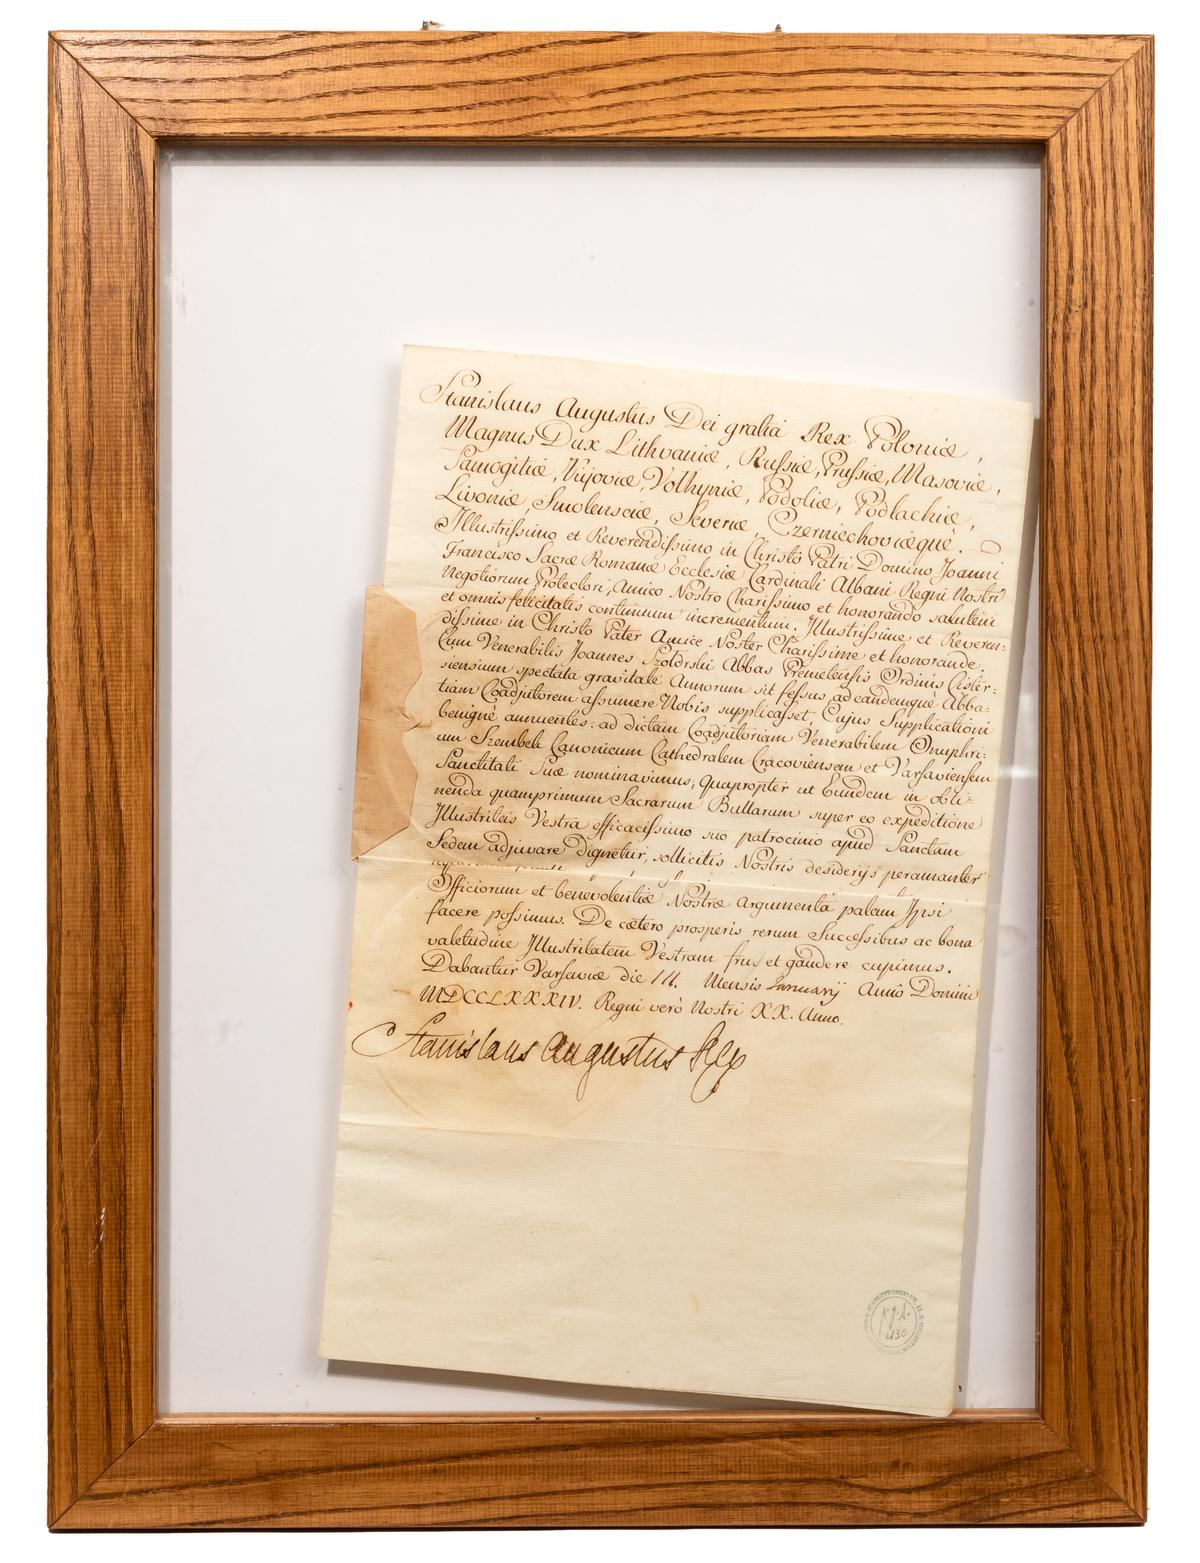 Stanislaus Augustus Dei gratiâ Rex Poloniæ,
Magnus Dux Lithvaniæ, Russiæ, Prussiæ, Masoviæ,
Samogitiæ, Kijoviæ, Volhyniæ, Podoliæ, Podlachiæ,
Livoniæ, Smolensciæ, Severiæ, Czerniechoviæquè.
Illustrissimo et Reverendissimo in Christo Patri Domino Joanni
Francisco Sacræ Romanæ Ecclesiæ Cardinali Albani Regni Nostri
Negotiorum Protectori, Amico Nostro Charissimo et honorando salutem
et omnis felicitatis continuum incrementum. Illustrissime et Reveren:
dissime in Christo Pater Amice Noster Charissime et honorande.
Cum Venerabilis Joannes Szołdrski Abbas Premetensis Ordinis Cister:
siensium spectata gravitate Annorum sit fessus, ad eandemque Abba:
tiam Coadjutorem assumere Nobis supplicasset, Cujus Supplicationi
benignè annuentes: ad dictam Coadjutoriam Venerabilem Onuphri:
um Szembek Canonicum Cathedralem Cracoviensem et Varsaviensem
Sanctitati Suæ nominavimus, quapropter ut Eundem in obti:
nenda quamprimum Sacrarum Bullarum super eo expeditione
Illustritas Vestra efficacissimo suo patrocinio apud Sanctam
Sedem adjuvare dignetur, sollicitis Nostris desiderijs peramanter
Officiorum et benevolentiæ Nostræ argumenta palam Ipsi
facere possimus. De cætero prosperis rerum Successibus ac bona
valetudine Illustritatem Vestram frui et gaudere cupimus.
Dabantur Varsaviæ die Mensis January Annô Domini
MDCCLXXXIV. Regni verò Nostri XX. Anno.
Stanislaus Augustus Rex
430